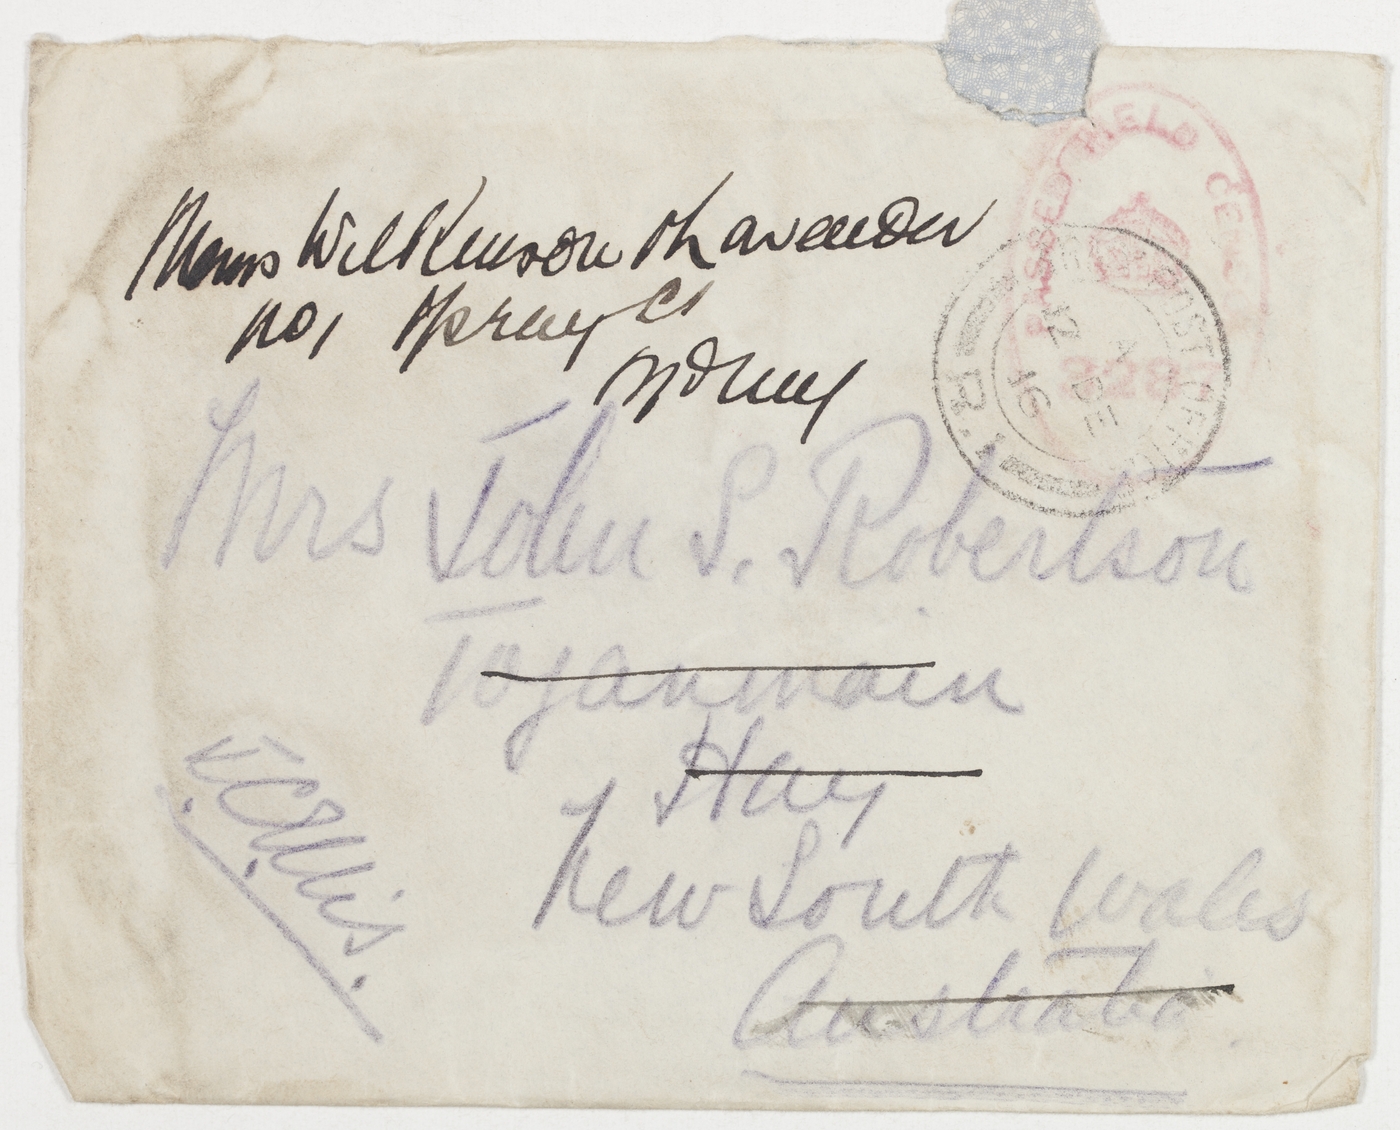 PASSED FIELD CENSOR
POST OFFICE
12 DE 16
Messrs Wilkinson & Lavender
No 1 Spring St
Sydney
Mrs John S. Robertson
Toganmain
Hay
New South Wales
Australia.
J.C. Ellis.